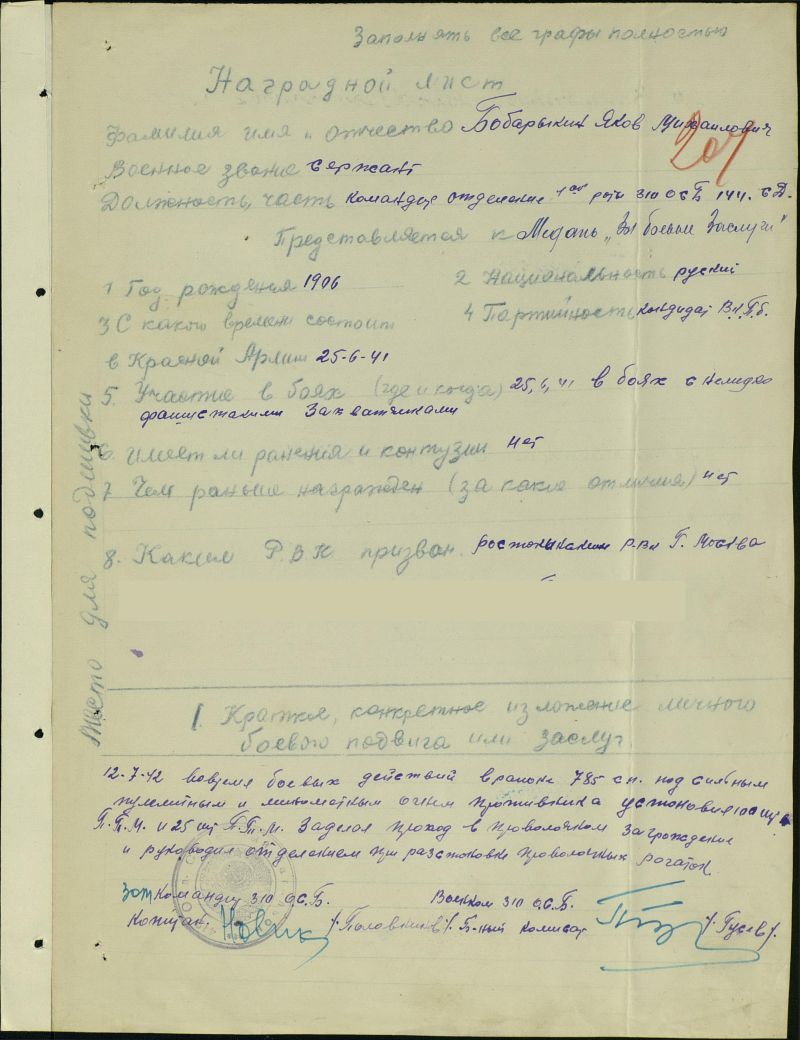 Заполнять все графы полностью
Наградной лист
Фамилия имя и отчество Бобарыкин Яков Михаилович
207
Военное звание Сержант
Должность, часть командир отделение 1ой роты 310 ОСБ 144. СД.
Представляется к Медаль „За боевые Заслуги"
1 Год рождения 1906
2 Национальность руский
3 С какого времени состоит
4 Партийность кандидат ВКПб.
в Красной Армии 25-6-41
5. Участие в боях (где и когда) 25,6,41 в боях с немецко
фашисткими Захватчиками
6 имеет ли ранения и контузии нет
7 Чем раньше награжден (за какие отличия) нет
8. Каким Р.В.К призван. Р-вк Г. Москва
Место для подшивки
1. Краткое, конкретное изложение личного
боевого подвига или заслуг
12-7-42 вовремя боевых действий в раионе 785 сп. под сильным
пулеметным и минометным огнем противника установил 100 шт
П.П.М. и 25 шт П.Т.М. Заделал проход в проволочном заграждение
и руководил отделением при разстановки проволочных рогаток.
Командир 310 ОС.Б.
Военком 310 О.С.Б.
Капитан Новик /Половников/.
Б-ный комисар /Гусев/.